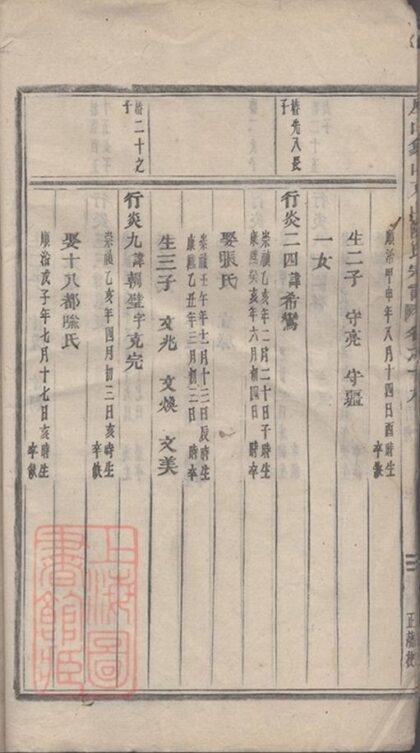 順治甲申年八月十四日酉時生
卒缺
生二子 守亮 守疆
一女
椿先入長
子
行炎二四諱希鸞
崇禎乙亥年二月二十日子時生
康熙癸亥年六月初四日 時卒
娶張氏
崇禎壬午年十一月十三日辰時生
康熙乙丑年三月初三日 時卒
生三子 文兆 文煥 文美
椿二十之
子
行炎九諱朝璧字克完
崇禎乙亥年四月初三日亥時生
卒缺
娶十八都陰氏
順治戊子年七月十七日亥時生
卒缺
上海圖
書館藏